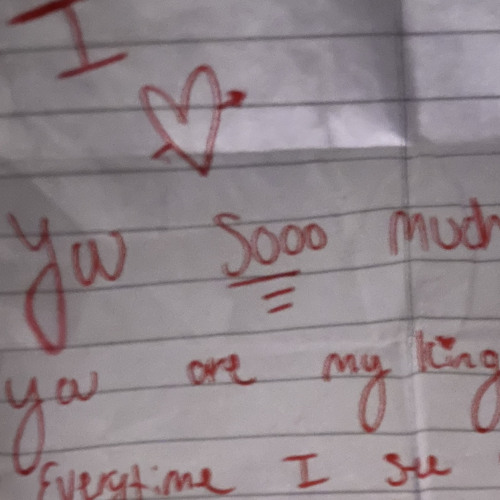 I
you Sooo much
you are my king
Everytime I see